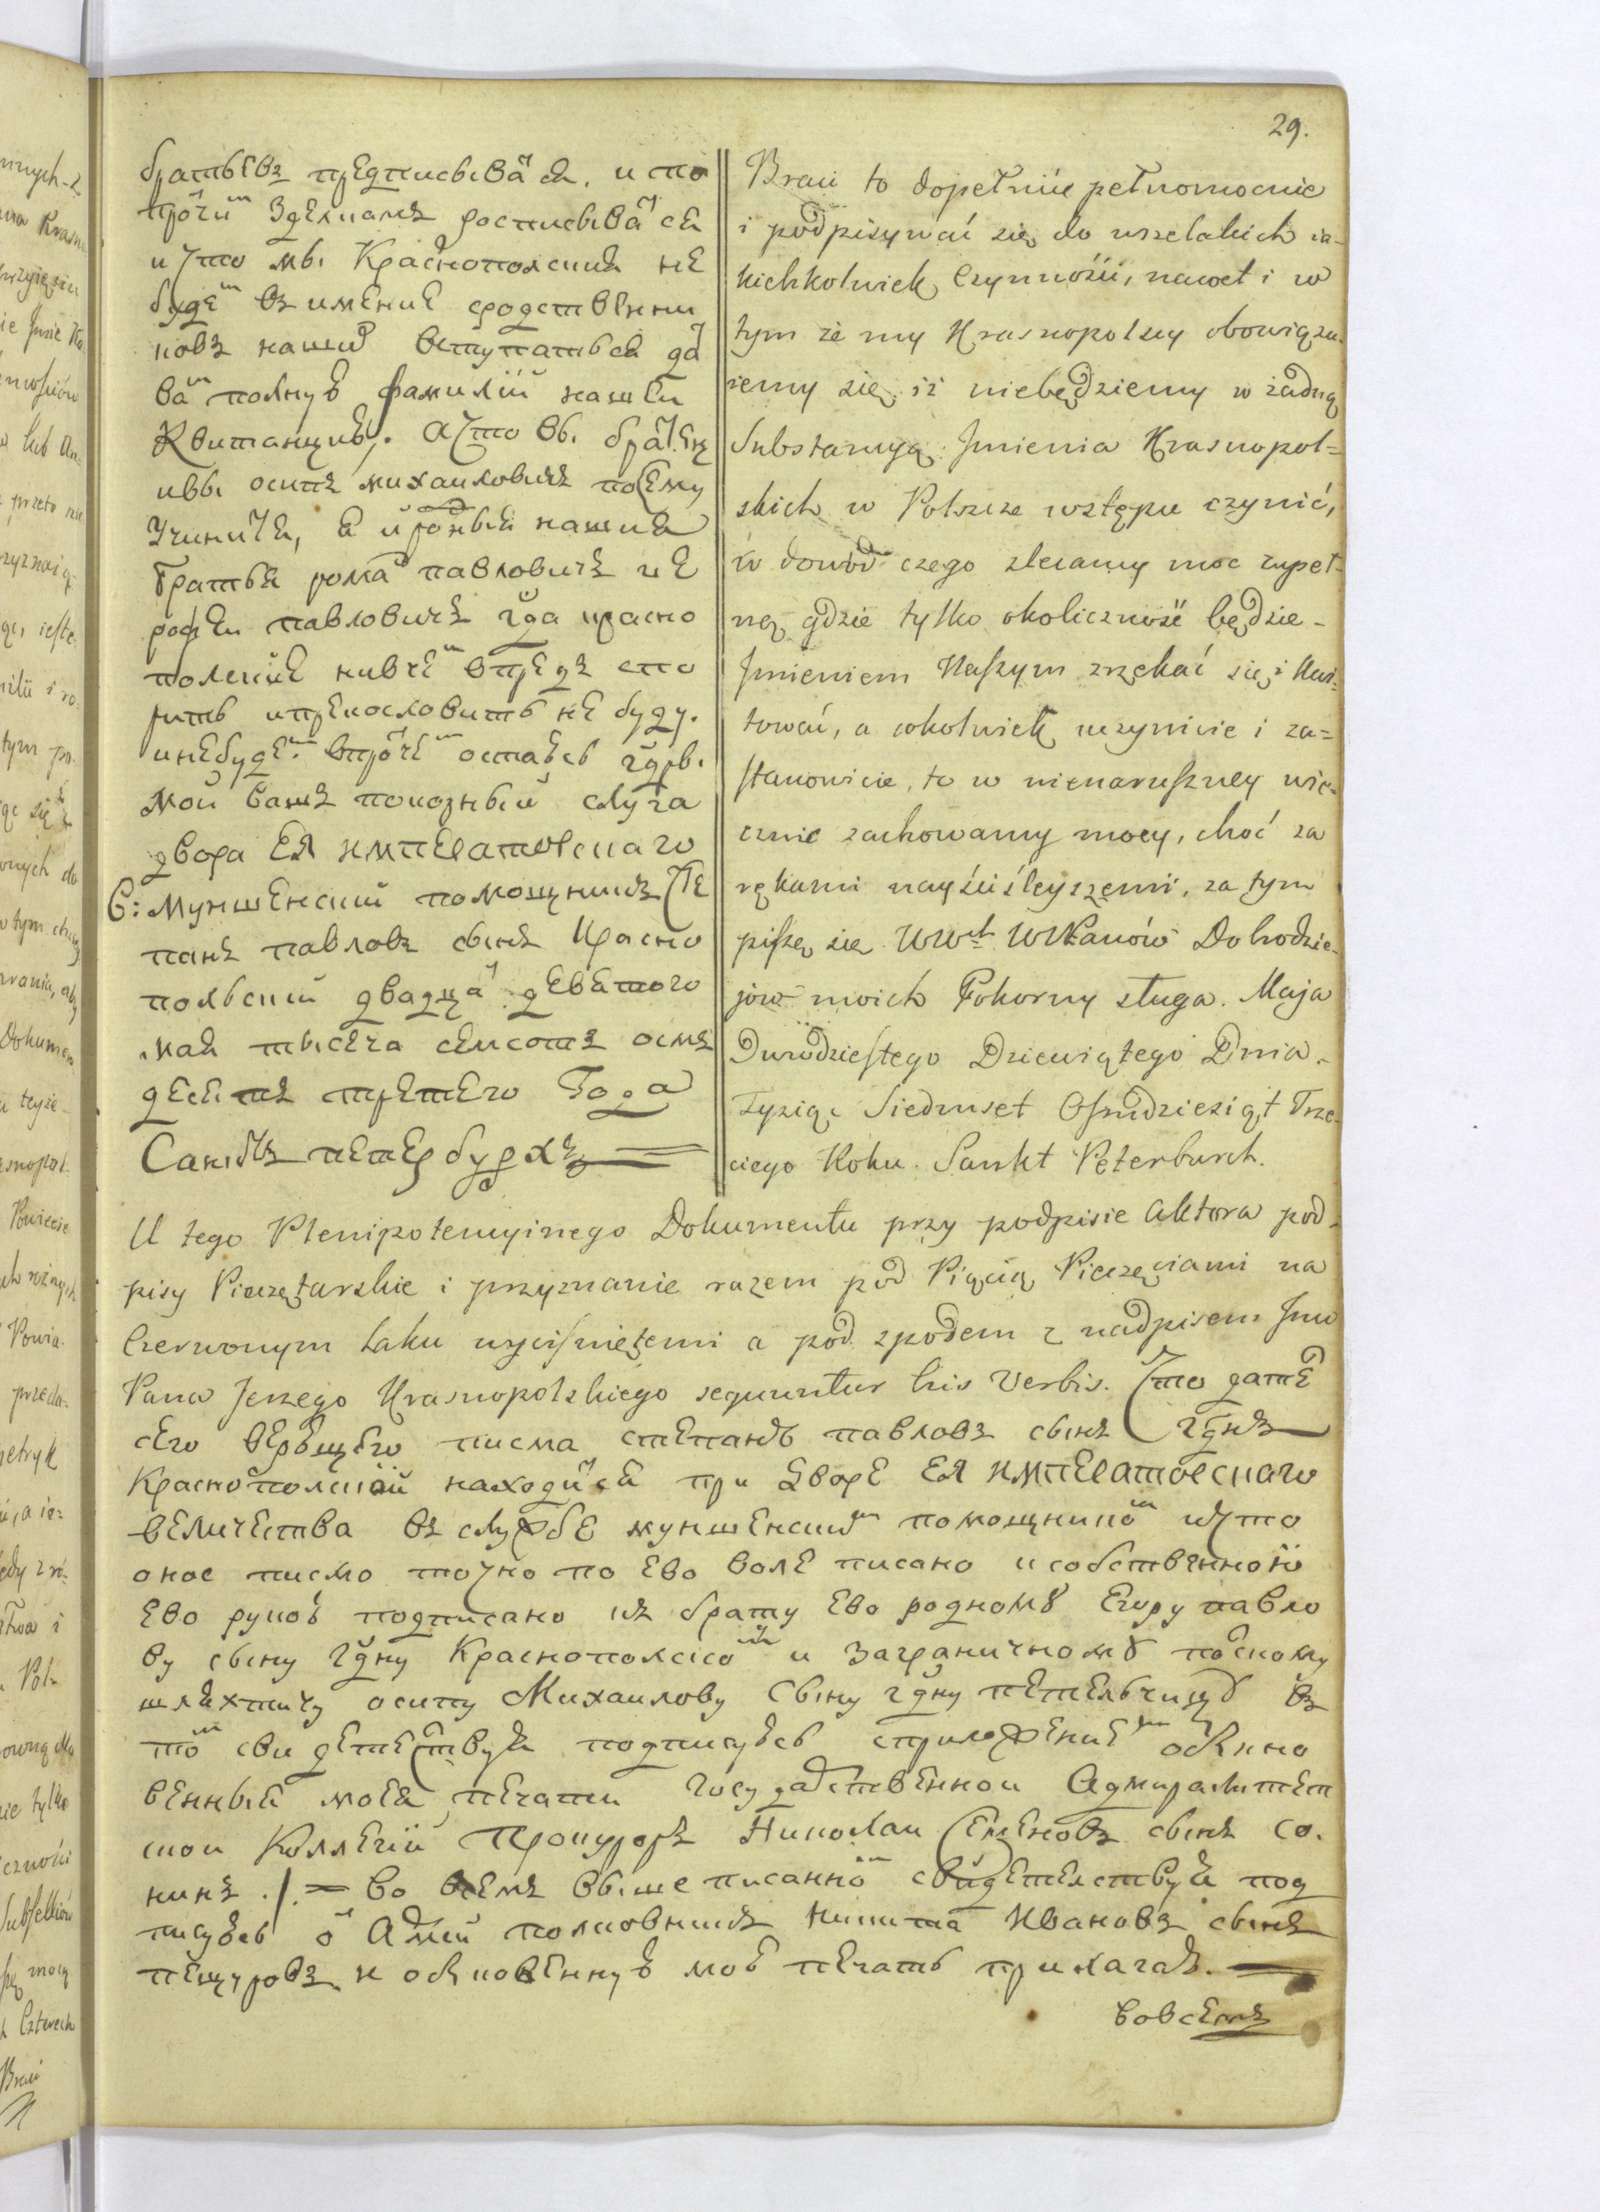 29.
братьевъ предписыватся. и по
прочим зделкамъ росписыватся
и что мы Краснополския не
будем въ имение сродственни
ковъ наших вступаться да
ваем полную фамилїи нашеи
Квитанцию. А что вы братец
ивы осипъ михаиловичъ по сему
учините, я и родныя нашия
братья роман павловичъ и е
рофеи павловичъ гда красно
полские ничем впредъ спо
рить ипрекословить не буду.
и не будем. впрочем остаюсь гдры
мои вашъ покорный слуга
двора ЕЯ ИМПЕРАТОРСКАГО
В: муншенский помощникъ Сте
панъ павловъ сынъ Красно
польский двадцать девятого
мая тысяча семсотъ осмъ
десятъ третего Года
Санктъ петербурхъ
Braci to dopełnicie pełnomocnie
i podpisywać się do wszelakich ia-
kichkolwiek Czynności, nawet i w
tym że my Krasnopolscy obowiązu-
iemy się iż niebędziemy w żadną
Substancyą Jmienia Krasnopol-
skich w Polszcze wstępu czynić,
w dowód czego zlecamy moc zupeł-
ną gdzie tylko okoliczność będzie-
Jmieniem Naszym zrzekać się i kwi-
tować, a cokolwiek uczynicie i za-
stanowicie, to w nienaruszney wie-
cznie zachowamy mocy, choć za
rękami nayściśleyszemi, za tym
piszę się WWch WPanów Dobrodzie-
jów moich Pokorny sługa. Maja
Dwudziestego Dziewiątego Dnia
Tysiąc Siedmset Osmdziesiąt Trze-
ciego Roku. Sankt Peterburch.
U tego Plenipotencyinego Dokumentu przy podpisie Aktora pod-
pisy Pieczętarskie i przyznanie razem pod Pięcią Pieczęciami na
Czerwonym Laku wyciśniętemi a pod spodem z nadpisem Jmć
Pana Jerzego Krasnopolskiego sequuntur his verbis. Что датель
сего верющего писма степанъ павловъ сынъ Гднъ
Краснополский находится при Дворе ЕЯ ИМПЕРАТОРСКАГО
величества въ службе муншенским помощником и что
оное писмо точно по ево воле писано и собственною
ево рукою подписано къ брату ево родному Егору павло
ву сыну гдну Краснополском и заграничному полскому
шляхтичу осипу Михаилову Сыну гдну петельчицу въ
том свидетельствуя подписуюсь с приложением обкно
венныя моея печати Государственнои Адмиралитет
скои Коллегии Прокуроръ Николаи Семеновъ сынъ Со.
нинъ. во всемъ выше писанном свидетелствуя под
писуюсь Армеи полковникъ Никита Ивановъ сынъ
пещуровъ и обкновенную мою печать прилагаю.
вовсемъ